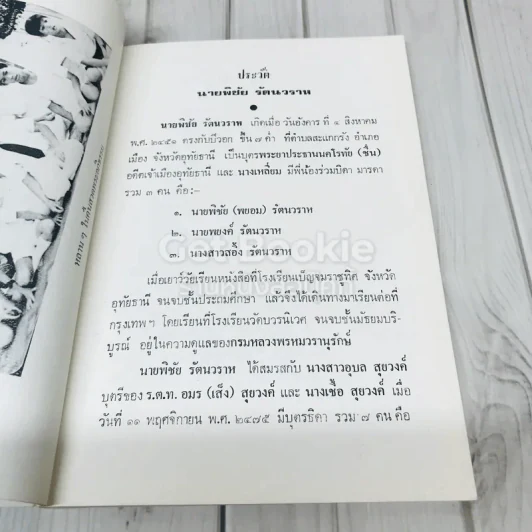 ประวัติ
นายพิชัย รัตนวราห
นายพิชัย รัตนวราห เกิดเมื่อ วันอังคาร ที่ ๔ สิงหาคม
พ.ศ. ๒๔๕๑ ตรงกับปีวอก ขึ้น ๗ ค่ำ ที่ตำบลสะแกกรัง อำเภอ
เมือง จังหวัดอุทัยธานี เป็นบุตรพระยาประธานนคโรทัย (ชื่น)
อดีตเจ้าเมืองอุทัยธานี และ นางเหลี่ยม มีพี่น้องร่วมบิดา มารดา
รวม ๓ คน คือ:-
๑. นายพิชัย (พยอม) รัตนวราห
๒. นายพยงค์ รัตนวราห
๓. นางสาวสอิ้ง รัตนวราห
Get Bookie
เมื่อเยาว์วัยเรียนหนังสือที่โรงเรียนเบ็ญจมราชูทิศ จังหวัด
อุทัยธานี จนจบชั้นประถมศึกษา แล้วจึงได้เดินทางมาเรียนต่อที่
กรุงเทพฯ โดยเรียนที่โรงเรียนวัดบวรนิเวศ จนจบชั้นมัธยมบริ-
บูรณ์ อยู่ในความดูแลของกรมหลวงพรหมวรานุรักษ์
นายพิชัย รัตนวราห ได้สมรสกับ นางสาวอุบล สุยวงค์
บุตรีของ ร.ต.ท. อมร (เส็ง) สุยวงค์ และ นางเชื้อ สุยวงค์ เมื่อ
วันที่ ๑๑ พฤศจิกายน พ.ศ. ๒๔๗๕ มีบุตรธิดา รวม ๗ คน คือ